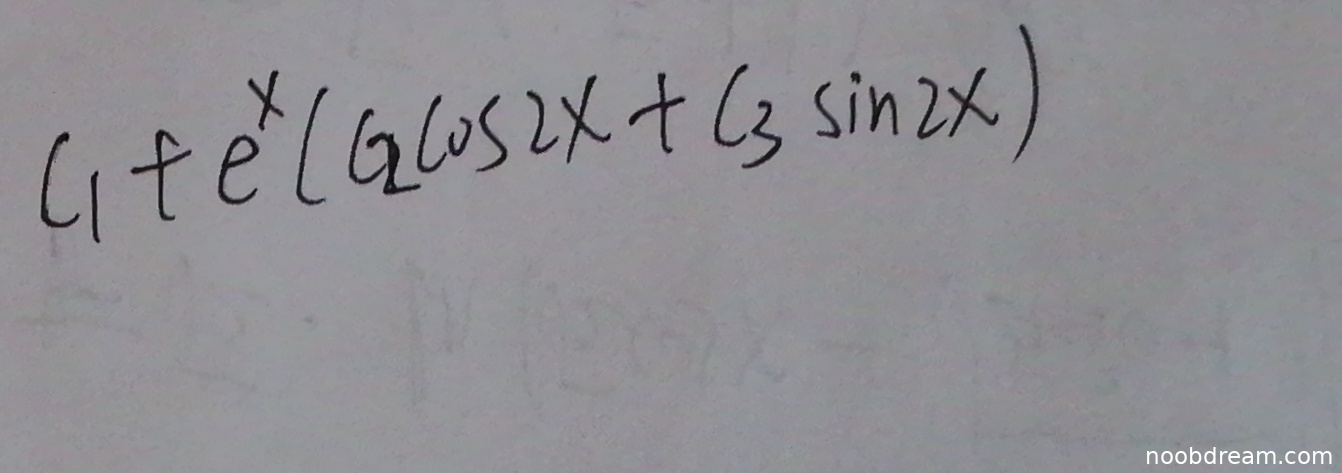 C₁ + eˣ(C₂cos2x + C₃ sin2x)
noobdream.com